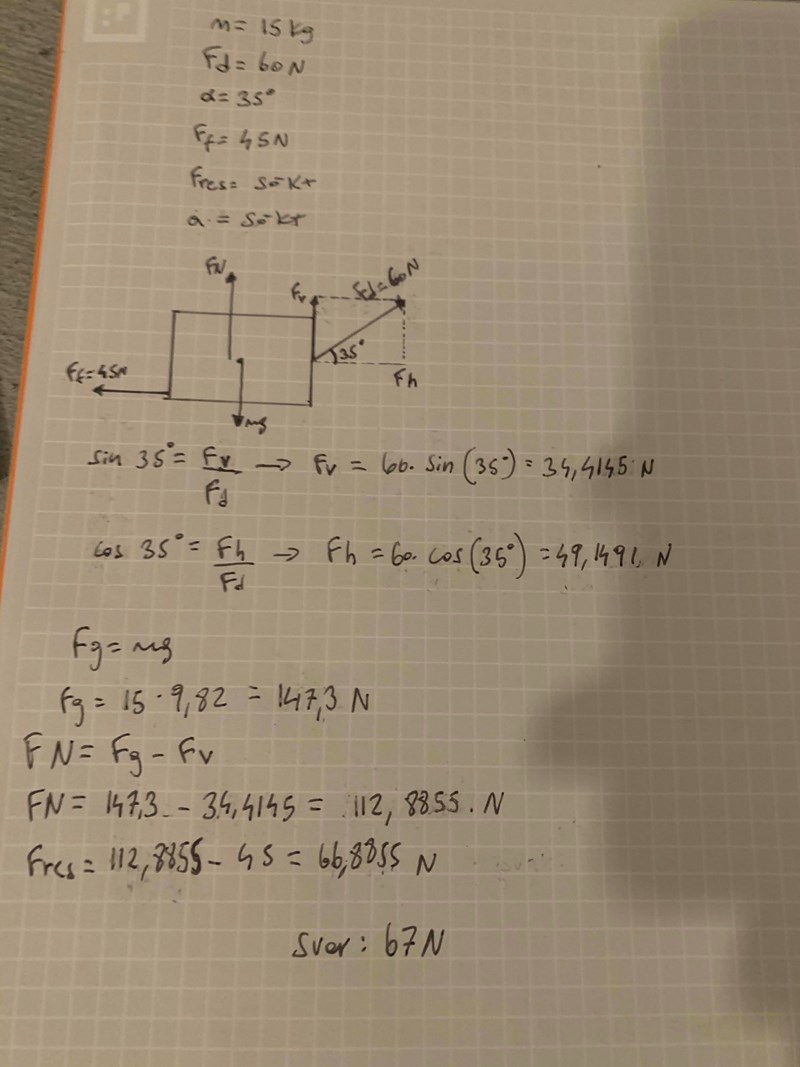 m = 15 kg
Fd = 60 N
α = 35°
Ff = 45N
Fres = Sökt
a = Sökt
FN
Fv
Fd=60N
35°
Ff=45N
Fh
mg
sin 35° = Fv/Fd → Fv = 60 · sin(35°) = 34,4145 N
cos 35° = Fh/Fd → Fh = 60 · cos(35°) = 49,1491 N
Fg = mg
Fg = 15 · 9,82 = 147,3 N
FN = Fg - Fv
FN = 147,3 - 34,4145 = 112,8855 N
Fres = 112,8855 - 45 = 66,8855 N
Svar: 67N